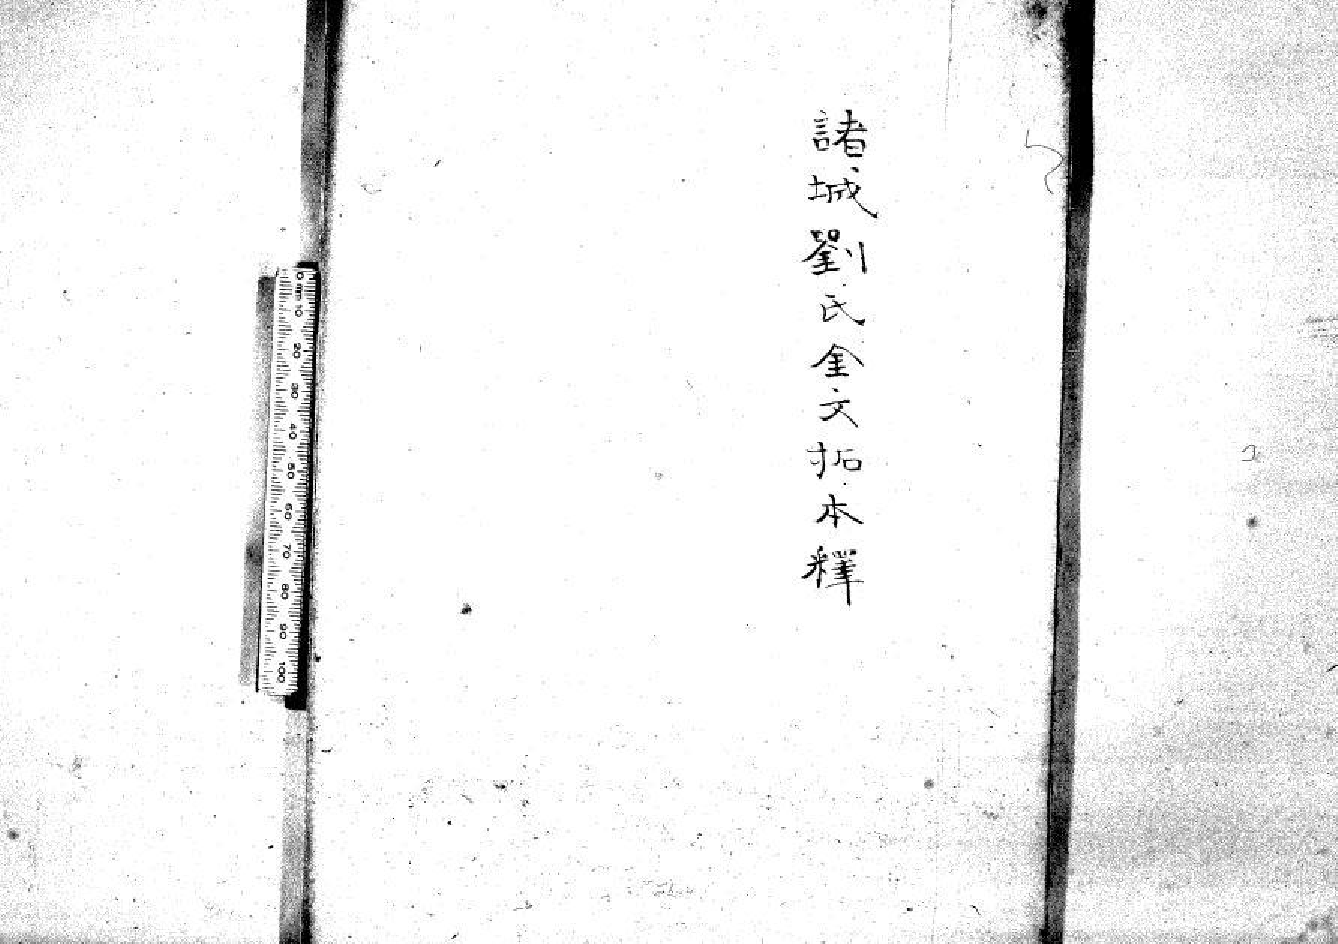 諸城劉氏金文拓本釋
0 mm 10 20 30 40 50 60 70 80 90 100